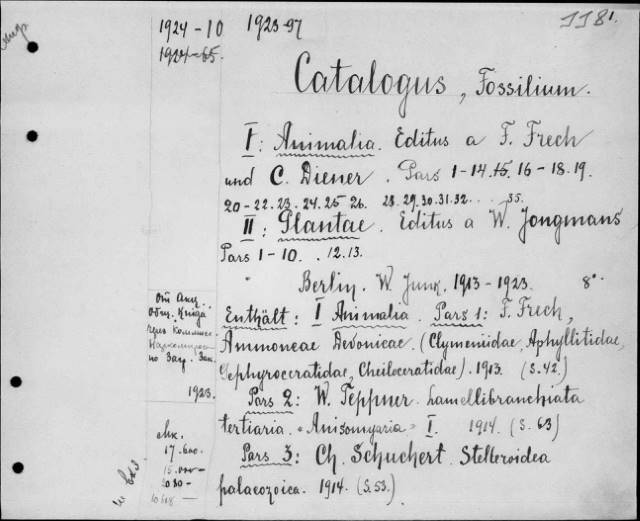 1181.
1924-10 1923-97
1924-65.
Catalogus, Fossilium.
I: Animalia. Editus a F. Frech
und C. Diener. Pars 1-14. 15. 16-18. 19.
20-22. 23. 24. 25 26. 28. 29. 30. 31. 32. . . 35.
II: Plantae. Editus a W. Jongmans
Pars 1-10. . 12. 13.
Berlin. W. Junk. 1913-1923. 8°.
Enthält: I Animalia. Pars 1: F. Frech,
Ammoneae Devonicae. (Clymeniidae, Aphyllitidae,
Gephyroceratidae, Cheiloceratidae). 1913. (S. 42.)
Pars 2: W. Teppner. Lamellibranchiata
tertiaria. "Anisomyaria" I. 1914. (S. 63)
Pars 3: Ch. Schuchert. Stelleroidea
palaeozoica. 1914. (S. 53.)
От Акц.
Общ. Книга
через
по Заг. Зак.
1923.
17.600.